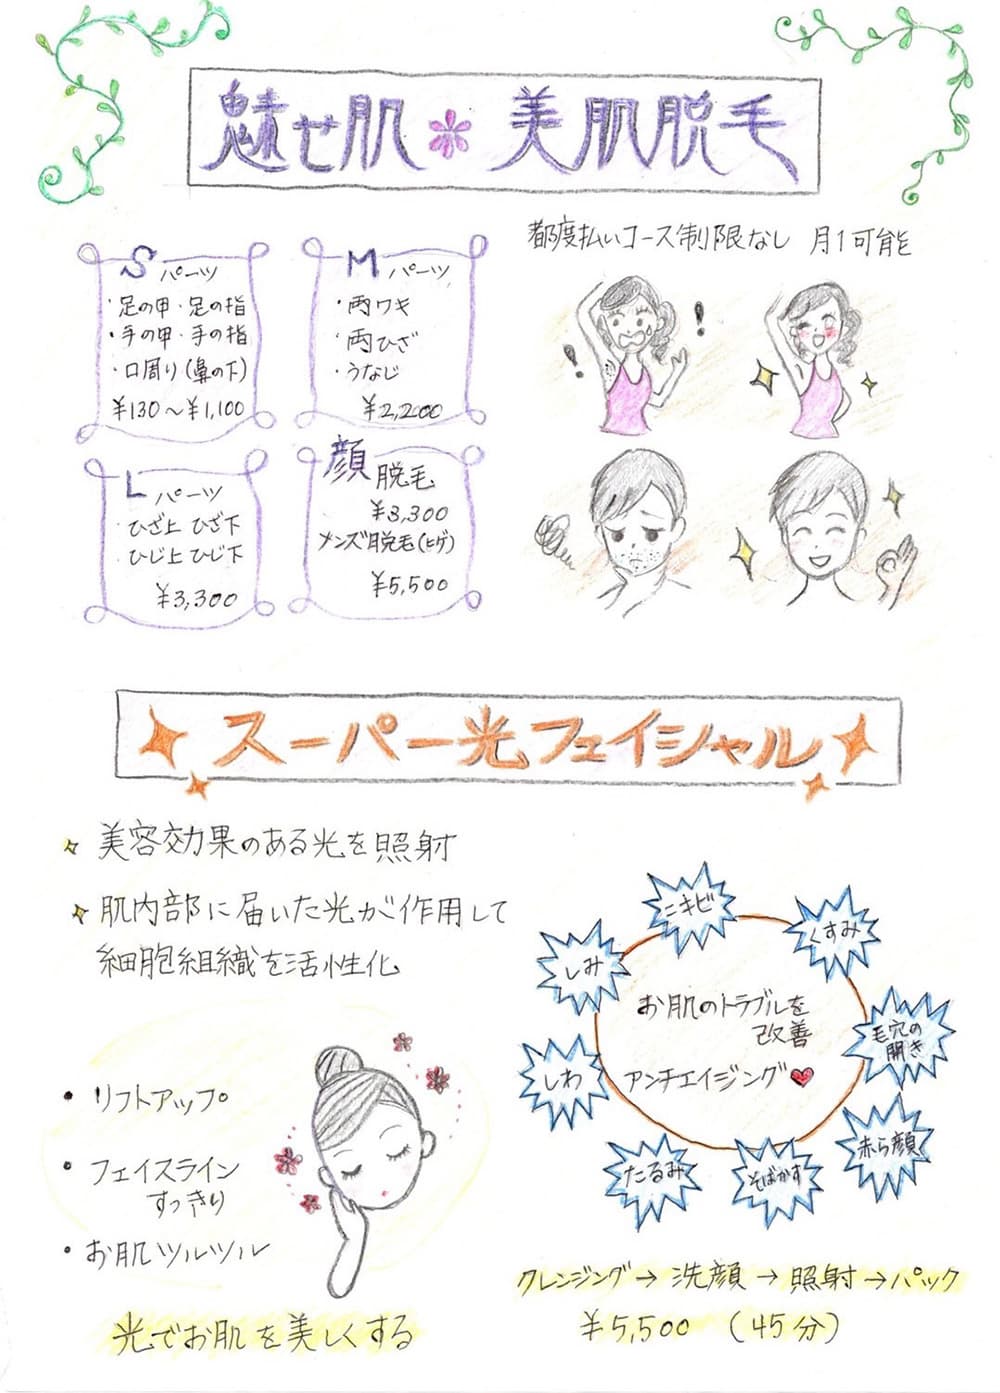 魅せ肌 美肌脱毛
都度払いコース制限なし 月1可能
Sパーツ
・足の甲・足の指
・手の甲・手の指
・口周り(鼻の下)
¥130〜¥1,100
Mパーツ
・両ワキ
・両ひざ
・うなじ
¥2,200
Lパーツ
ひざ上 ひざ下
ひじ上 ひじ下
¥3,300
顔脱毛
¥3,300
メンズ脱毛(ヒゲ)
¥5,500
! !
スーパー光フェイシャル
美容効果のある光を照射
肌内部に届いた光が作用して
細胞組織を活性化
・リフトアップ
・フェイスライン
すっきり
・お肌ツルツル
光でお肌を美しくする
ニキビ
くすみ
しみ
毛穴の
開き
しわ
赤ら顔
たるみ
そばかす
お肌のトラブルを
改善
アンチエイジング
クレンジング→洗顔→照射→パック
¥5,500 (45分)